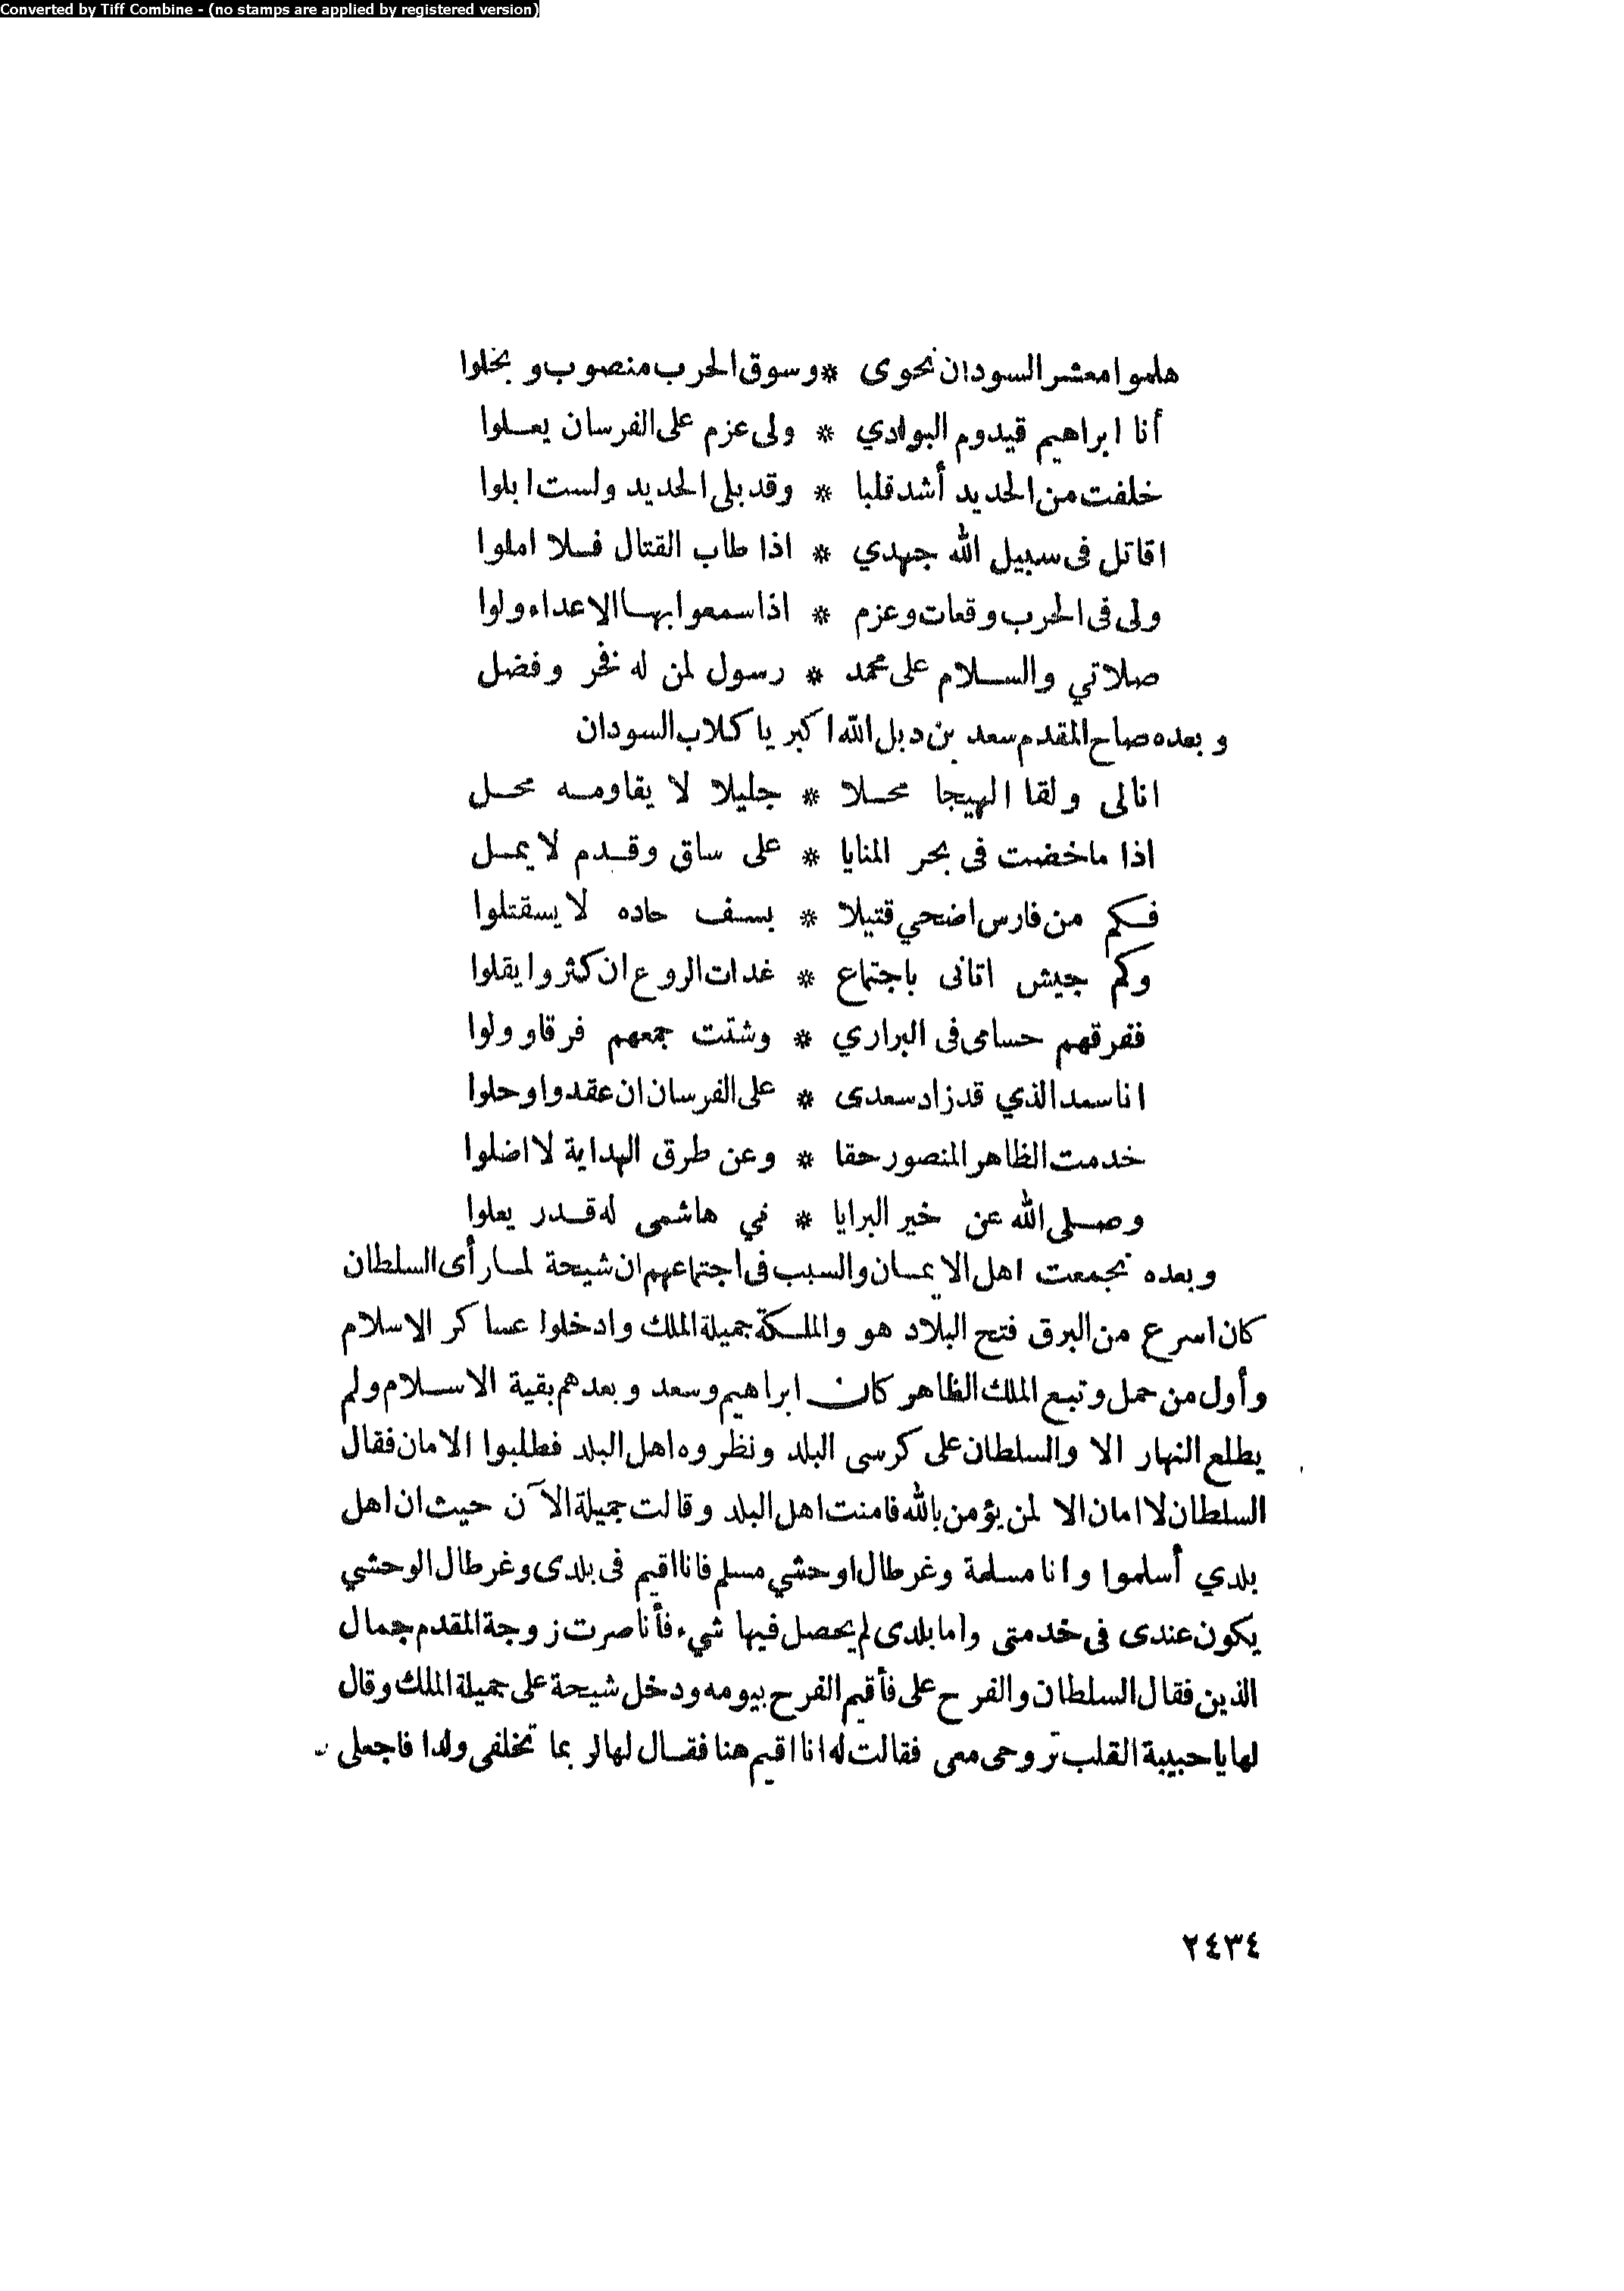 Converted by Tiff Combine - (no stamps are applied by registered version)
هلموا معشر السودان نحوى * وسوق الحرب منصوب ويخلوا
أنا ابراهيم قيدوم البوادي * ولى عزم على الفرسان يعلوا
خلفت من الحديد أشد قلبا * وقد بلى الحديد ولست ابلوا
اقاتل فى سبيل الله جهدي * اذا طاب القتال فلا املوا
ولى فى الحرب وقعات وعزم * اذا سمعوا بها الاعداء ولوا
صلاتي والسلام على محمد * رسول لمن له نفخر وفضل
وبعده صاح المقدم سعد بن دبل الله اكبر يا كلاب السودان
انالى ولقا الهيجا محلا * جليلا لا يقاومه محل
اذا ماخضت فى بحر المنايا * على ساق وقدم لا يمل
فكم من فارس اضحي قتيلا * بسف حاده لا يسقتلوا
وكم جيش اتانى باجتماع * غدات الروع ان كثروا يقلوا
ففرقهم حسامى فى البراري * وشتت جمعهم فرقا وولوا
انا سعد الذي قد زاد سعدى * على الفرسان ان عقدوا وحلوا
خدمت الظاهر المنصور حقا * وعن طرق الهداية لا اضلوا
وصلى الله عن خير البرايا * نبي هاشمى له قدر يعلوا
وبعده تجمعت اهل الايمان والسبب فى اجتماعهم ان شيحة لما رأى السلطان
كان اسرع من البرق فتح البلاد هو والملكة جميلة الملك وادخلوا عساكر الاسلام
وأول من حمل وتبع الملك الظاهر كان ابراهيم وسعد وبعدهم بقية الاسلام ولم
يطلع النهار الا والسلطان على كرسى البلد ونظروه اهل البلد فطلبوا الامان فقال
السلطان لا امان الا لمن يؤمن بالله فامنت اهل البلد وقالت جميلة الآن حيث ان اهل
بلدي أسلموا وانا مسلمة وغرطال اوحشي مسلم فانا اقيم فى بلدى وغرطال الوحشي
يكون عندى فى خدمتى واما بلدى لم يحصل فيها شيء فأنا صرت زوجة المقدم جمال
الذين فقال السلطان والفرح على فأقيم الفرح بيومه ودخل شيحة على جميلة الملك وقال
لها يا حبيبة القلب تروحى معى فقالت له انا اقيم هنا فقال لها لربما تخلفى ولدا فاجعلى
٢٤٣٤